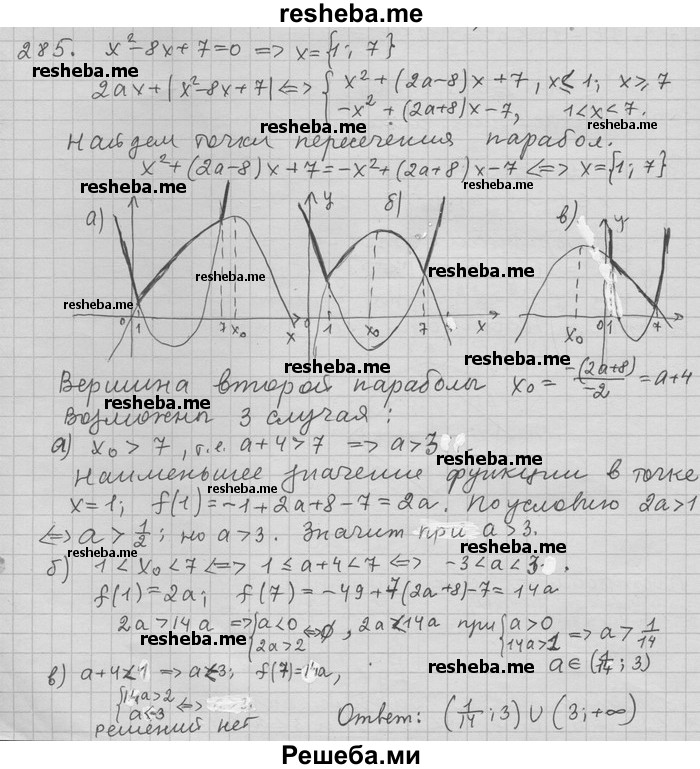 resheba.me
285. x²-8x+7=0 => x={1; 7}
resheba.me
2ax+|x²-8x+7| <=> { x²+(2a-8)x+7, x≤1; x≥7
-x²+(2a+8)x-7, 1<x<7.
resheba.me
resheba.me
Найдем точки пересечения парабол.
x²+(2a-8)x+7=-x²+(2a+8)x-7 <=> x={1; 7}
resheba.me
resheba.me
а) y б) в) y
resheba.me
resheba.me
resheba.me
0 1 7 x₀ x 0 1 x₀ 7 x x₀ 0 1 7 x
resheba.me
resheba.me
Вершина второй параболы x₀ = -(2a+8)/-2 = a+4
resheba.me
Возможны 3 случая:
а) x₀>7, т.е. a+4>7 => a>3
resheba.me
Наименьшее значение функции в точке
x=1; f(1)=-1+2a+8-7=2a. По условию 2a>1
resheba.me
<=> a>1/2; но a>3. Значит при a>3.
resheba.me
resheba.me
б) 1<x₀<7 <=> 1≤a+4<7 <=> -3<a<3.
f(1)=2a; f(7)=-49+7(2a+8)-7=14a
2a>14a => {a<0 2a>2 <=> ∅, 2a<14a при {a>0 14a>1 => a>1/14
resheba.me
resheba.me
a∈(1/14; 3)
в) a+4<1 => a<-3; f(7)=14a,
{14a>2 a<-3 <=>
resheba.me
решений нет
Ответ: (1/14; 3)∪(3; +∞)
Решеба.ми